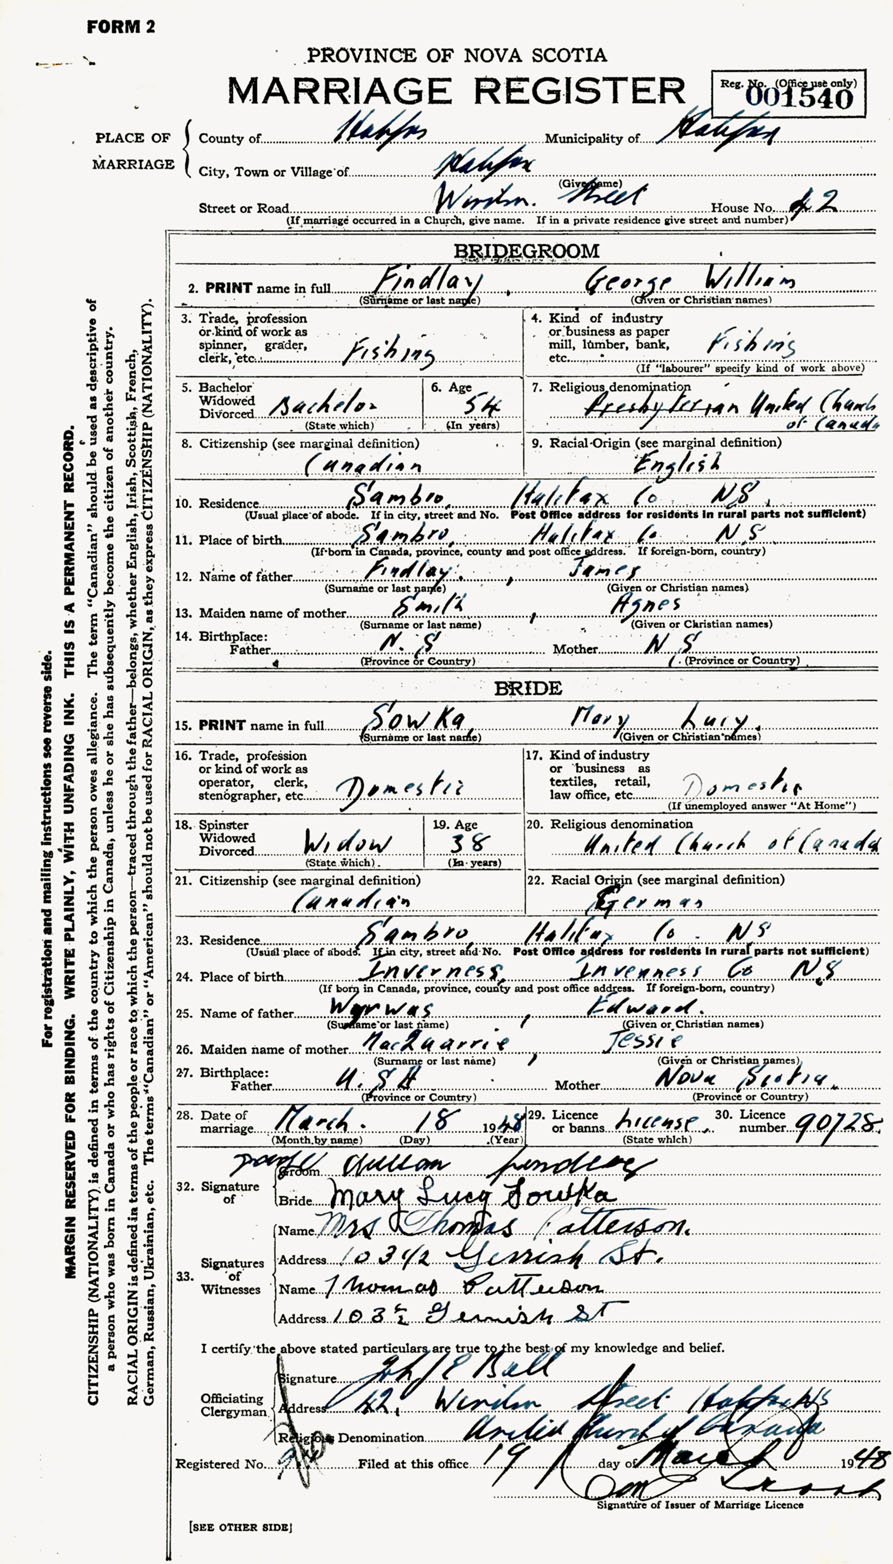 FORM 2
PROVINCE OF NOVA SCOTIA
MARRIAGE REGISTER
Reg. No. (Office use only)
001540
PLACE OF MARRIAGE
County of Halifax Municipality of Halifax
City, Town or Village of Halifax
(Give name)
Street or Road Windsor Street House No. 42
(If marriage occurred in a Church, give name. If in a private residence give street and number)
BRIDEGROOM
2. PRINT name in full Findlay, George William
(Surname or last name) (Given or Christian names)
3. Trade, profession or kind of work as spinner, grader, clerk, etc. Fishing
4. Kind of industry or business as paper mill, lumber, bank, etc. Fishing
(If "labourer" specify kind of work above)
5. Bachelor Widowed Divorced Bachelor
(State which)
6. Age 54
(In years)
7. Religious denomination Presbyterian United Church of Canada
8. Citizenship (see marginal definition) Canadian
9. Racial Origin (see marginal definition) English
10. Residence Sambro, Halifax Co. NS
(Usual place of abode. If in city, street and No. Post Office address for residents in rural parts not sufficient)
11. Place of birth Sambro, Halifax Co NS
(If born in Canada, province, county and post office address. If foreign-born, country)
12. Name of father Findlay, James
(Surname or last name) (Given or Christian names)
13. Maiden name of mother Smith, Agnes
(Surname or last name) (Given or Christian names)
14. Birthplace:
Father N.S Mother N S
(Province or Country) (Province or Country)
BRIDE
15. PRINT name in full Sowka, Mary Lucy.
(Surname or last name) (Given or Christian names)
16. Trade, profession or kind of work as operator, clerk, stenographer, etc. Domestic
17. Kind of industry or business as textiles, retail, law office, etc. Domestic
(If unemployed answer "At Home")
18. Spinster Widowed Divorced Widow
(State which)
19. Age 38
(In years)
20. Religious denomination United Church of Canada
21. Citizenship (see marginal definition) Canadian
22. Racial Origin (see marginal definition) German
23. Residence Sambro, Halifax Co. NS
(Usual place of abode. If in city, street and No. Post Office address for residents in rural parts not sufficient)
24. Place of birth Inverness, Inverness Co NS
(If born in Canada, province, county and post office address. If foreign-born, country)
25. Name of father Edward.
(Surname or last name) (Given or Christian names)
26. Maiden name of mother MacQuarrie, Jessie
(Surname or last name) (Given or Christian names)
27. Birthplace:
Father U.S.A Mother Nova Scotia.
(Province or Country) (Province or Country)
28. Date of marriage March. 18 1948
(Month by name) (Day) (Year)
29. Licence or banns License
(State which)
30. Licence number 90728
32. Signature of
Groom Findlay
Bride Mary Lucy Sowka
33. Signatures of Witnesses
Name Mrs Thomas Patterson.
Address 103 1/2 Gerrish St.
Name Thomas Patterson
Address 103 1/2 Gerrish St
I certify the above stated particulars are true to the best of my knowledge and belief.
Officiating Clergyman
Signature Ball
Address 42, Windsor Street Halifax NS
Religious Denomination United Church of Canada
Registered No. Filed at this office 19 day of March 1948
Signature of Issuer of Marriage Licence
[SEE OTHER SIDE]
For registration and mailing instructions see reverse side.
MARGIN RESERVED FOR BINDING. WRITE PLAINLY, WITH UNFADING INK. THIS IS A PERMANENT RECORD.
CITIZENSHIP (NATIONALITY) is defined in terms of the country to which the person owes allegiance. The term "Canadian" should be used as descriptive of
a person who was born in Canada or who has rights of Citizenship in Canada, unless he or she has subsequently become the citizen of another country.
RACIAL ORIGIN is defined in terms of the people or race to which the person—traced through the father—belongs, whether English, Irish, Scottish, French,
German, Russian, Ukrainian, etc. The terms "Canadian" or "American" should not be used for RACIAL ORIGIN, as they express CITIZENSHIP (NATIONALITY).